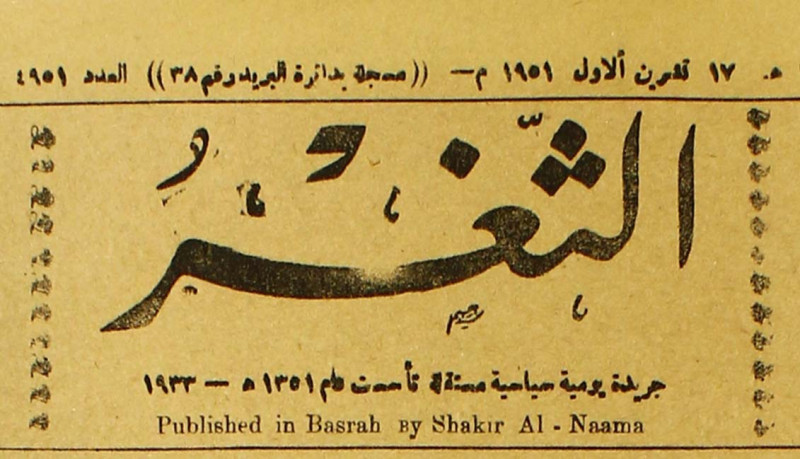 هـ ١٧ تشرين ألاول ١٩٥١ م — ((مسجلة بدائرة البريد رقم ٣٨)) العدد ٤٩٥١
الثَّغْرُ
جريدة يومية سياسية مستقلة تأسست عام ١٣٥١ ه — ١٩٣٣
Published in Basrah By Shakir Al - Naama